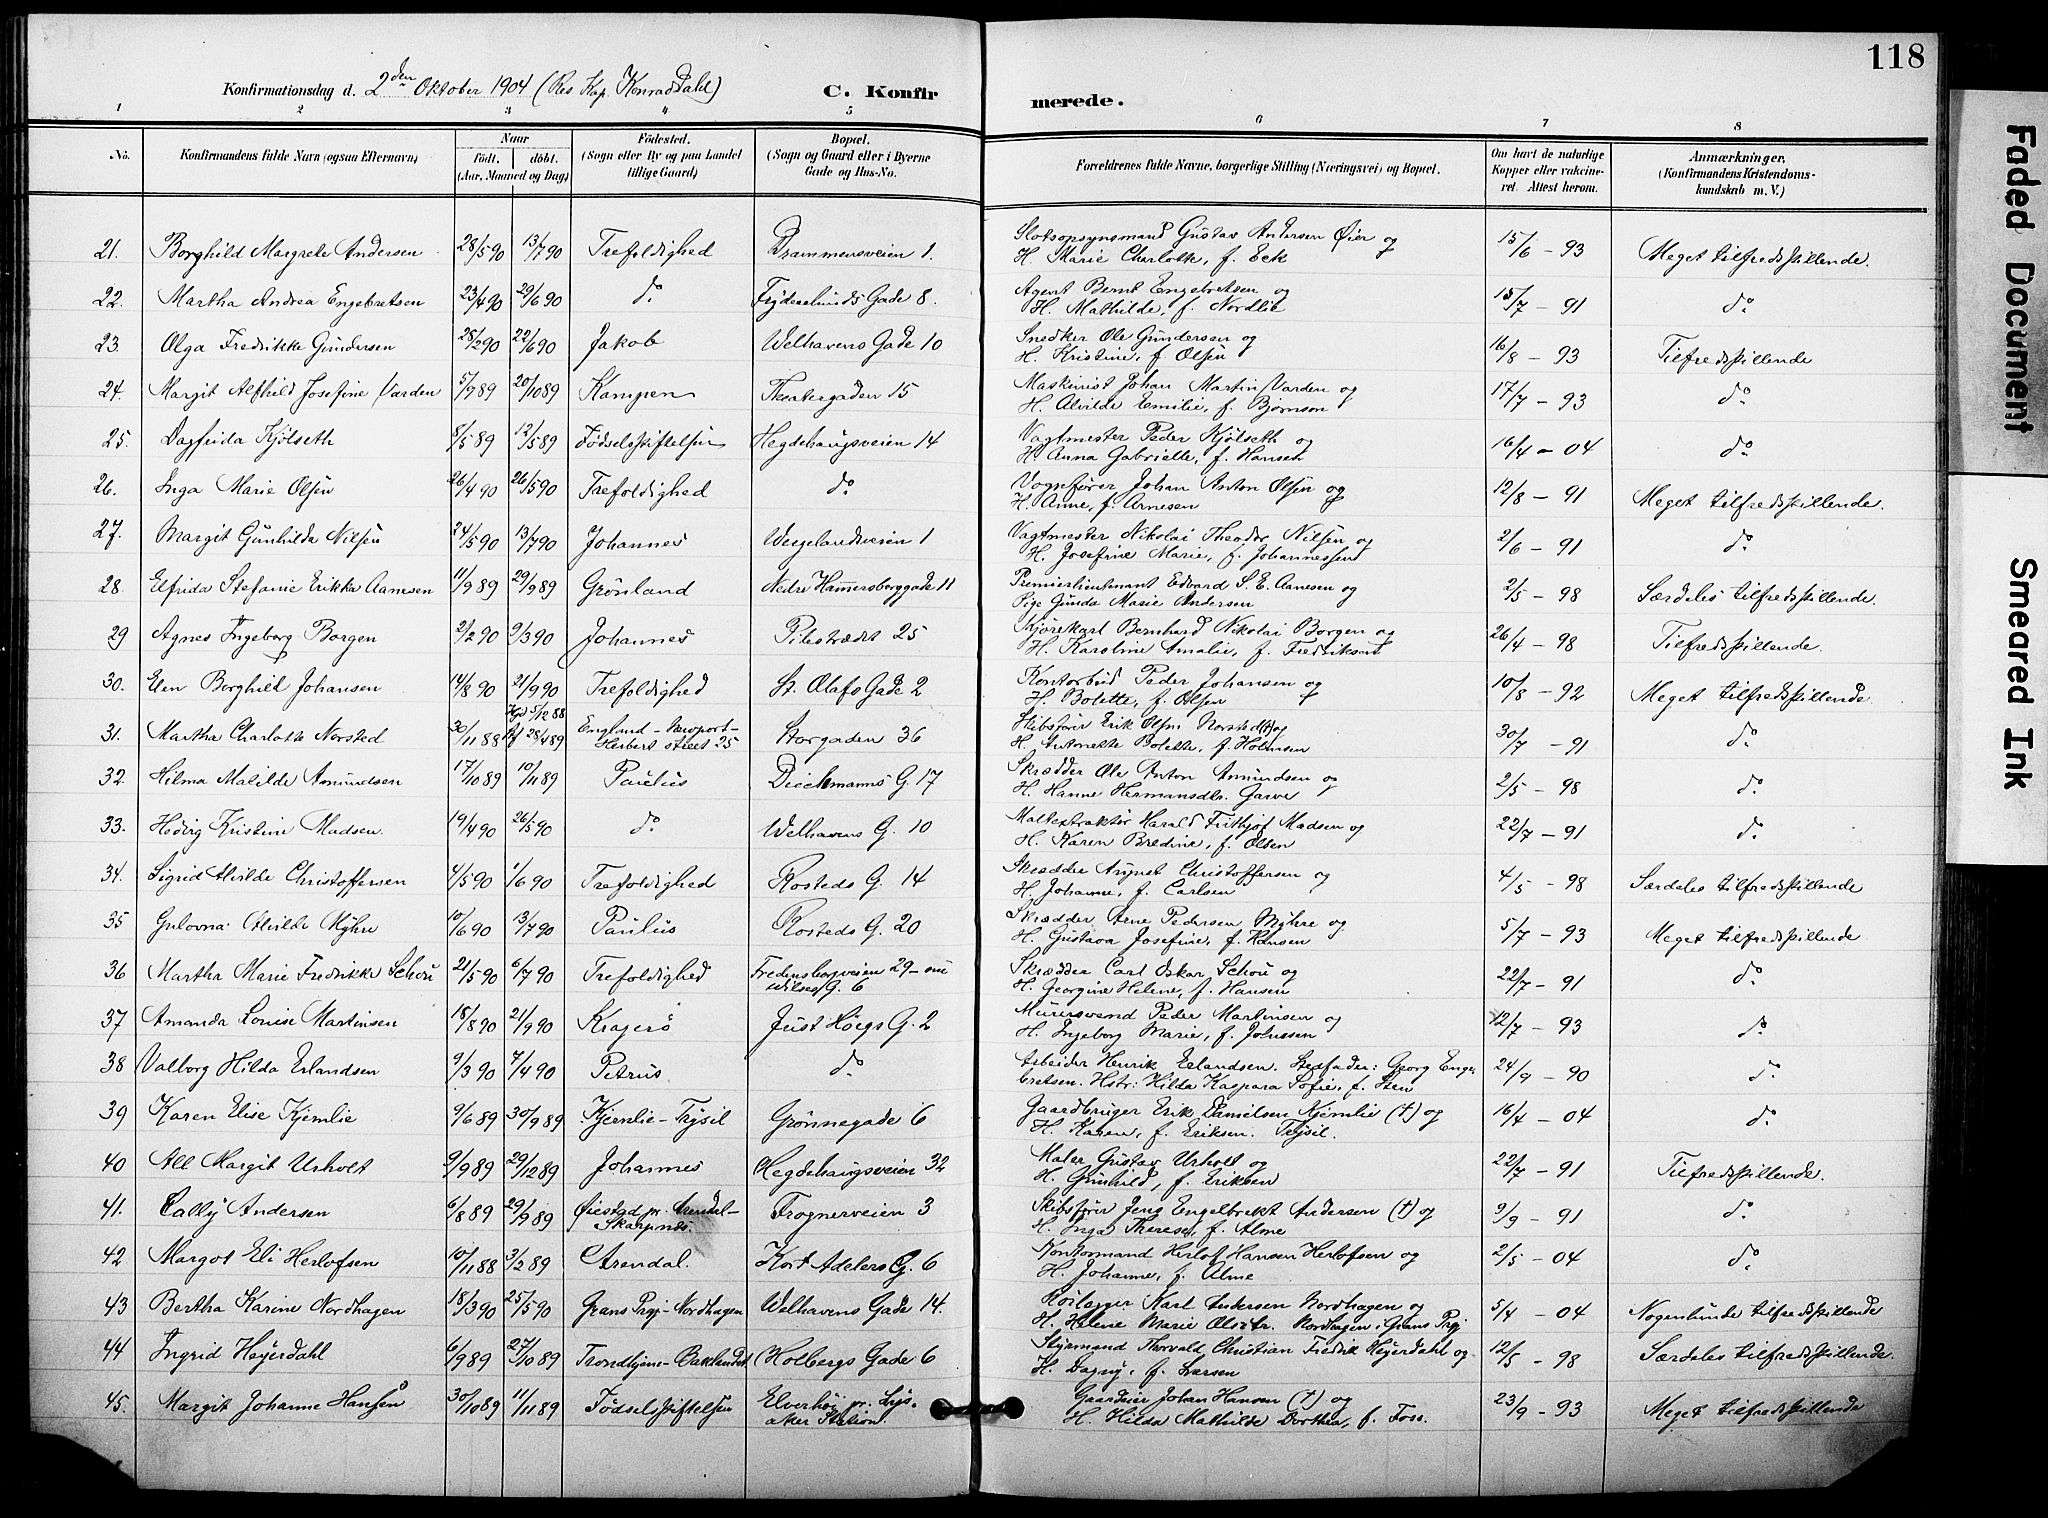 118
Konfirmationsdag d. 2den Oktober 1904 (Res Kap. Konrad Dahl) C. Konfir merede.
1 2 3 4 5 6 7 8
No. Konfirmandens fulde Navn (ogsaa Efternavn) Naar født, døbt. (Aar, Maaned og Dag) Födested. (Sogn eller By og paa Landet tillige Gaard) Bopæl. (Sogn og Gaard eller i Byerne Gade og Hus-No. Forældrenes fulde Navne, borgerlige Stilling (Næringsvei) og Bopæl. Om havt de naturlige Kopper eller vaccineret. Attest herom. Anmærkninger. (Konfirmandens Kristendomskundskab m. V.)
21. Borghild Margrete Andersen 28/5 90 13/7 90 Trefoldighed Drammensveien 1. Slotsopsynsmand Gustav Andersen Øier og 15/6 - 93 Meget tilfredsstillende.
H. Marie Charlotte, f. Eck
22. Martha Andrea Engebretsen 23/4 90 29/6 90 do Frydenlunds Gade 8. Agent Bernt Engebretsen og 15/7 - 91 do
H. Mathilde, f. Nordlie
23. Olga Fredrikke Gundersen 28/2 90 22/6 90 Jakob Welhavens Gade 10 Snedker Ole Gundersen og 16/8 - 93 Tilfredsstillende
H. Kristine, f. Olsen
24. Margit Alfhild Josefine Varden 5/9 89 20/10 89 Kampen Theatergaden 15 Maskinist Johan Martin Varden og 17/7 - 93 do
H. Alvilde Emilie, f. Bjørnson
25. Dagfrida Kjölseth 8/5 89 12/5 89 Fødselsstiftelsen Hegdehaugsveien 14 Vagtmester Peder Kjölseth og 16/4 - 04 do
H. Anna Gabrielle, f. Hansen
26. Inga Marie Olsen 26/4 90 26/5 90 Trefoldighed do Vognfører Johan Anton Olsen og 12/8 - 91 Meget tilfredsstillende.
H. Anne, f. Arnesen
27. Margit Gunhilda Nilsen 24/5 90 13/7 90 Johannes Wergelandsveien 1 Vagtmester Nikolai Theodor Nilsen og 2/6 - 91 do
H. Josefine Marie, f. Johannessen
28. Elfrida Stefanie Erikka Aamesen 11/9 89 29/9 89 Grönland Nedre Hammersborggade 11 Premierlieutenant Edvard S. E. Aamesen og 2/5 - 98 Særdeles tilfredsstillende.
Pige Gunda Marie Andersen
29 Agnes Ingeborg Borgen 2/2 90 9/3 90 Johannes Pilestrædet 25 Kjørekarl Bernhard Nikolai Borgen og 26/4 - 98 Tilfredsstillende.
H. Karoline Amalie, f. Fredriksen
30. Elen Borghild Johansen 14/8 90 21/9 90 Trefoldighed St. Olafs Gade 2 Kontorbud Peder Johansen og 10/8 - 92 Meget tilfredsstillende
H. Bolette, f. Olsen
31. Martha Charlotte Norsted 30/11 88 Hjd 5/12 88 28/4 89 England - Newport - Herbert street 25 Storgaden 36 Skibsfører Erik Olsen Norsted (†) og 30/7 - 91 do
H. Antonette Bolette, f. Holmsen
32. Hilma Matilde Amundsen 17/10 89 10/11 89 Paulus Deichmanns G. 17 Skrædder Ole Anton Amundsen og 2/5 - 98 do
H. Hanne Hermansdtr. Garve
33. Hedvig Kristine Madsen 19/4 90 26/5 90 do Welhavens G. 10 Maltextraktör Harald Frithjof Madsen og 22/7 - 91 do
H. Karen Bredine, f. Olsen
34. Sigrid Alvilde Christoffersen 4/5 90 1/6 90 Trefoldighed Rosteds G. 14 Skrædder August Christoffersen og 4/5 - 98 Særdeles tilfredsstillende
H. Johanne, f. Carlsen
35 Gulovna Alvilde Myhre 10/6 90 13/7 90 Paulus Rosteds G. 20 Skrædder Arne Pedersen Myhre og 5/7 - 93 Meget tilfredsstillende
H. Gustava Josefine, f. Hansen
36 Martha Marie Fredrikke Schou 21/5 90 6/7 90 Trefoldighed Fredensborgveien 29 - nu Wilses G. 6 Skrædder Carl Oskar Schou og 22/7 - 91 do
H. Georgine Helene, f. Hansen
37 Amanda Louise Martinsen 18/8 90 21/9 90 Kragerö Just Höegs G. 2 Murersvend Peder Martinsen og 12/7 - 93 do
H. Ingeborg Marie, f. Johnsen
38 Valborg Hilda Erlandsen 9/3 90 7/4 90 Petrus do Arbeider Henrik Erlandsen. Stedfader: Georg Enge- 24/9 - 90 do
bretsen. Hstr: Hilda Kaspara Sofie, f. Sten
39 Karen Elise Kjernlie 9/6 89 30/9 89 Kjernlie - Trysil Grönnegade 6 Gaardbruger Erik Danielsen Kjernlie (†) og 16/4 - 04 do
H. Karen, f. Eriksen. Trysil.
40 All Margit Urholt 9/9 89 29/12 89 Johannes Hegdehaugsveien 32 Maler Gustav Urholt og 22/7 - 91 Tilfredsstillende.
H. Gunhild, f. Eriksen
41. Cally Andersen 6/8 89 29/9 89 Øiestad pr. Arendal - Skarpnes. Frognerveien 3 Skibsfører Jens Engelbrekt Andersen (†) og 9/9 - 91 do
H. Inga Therese, f. Alme
42 Margot Eli Herlofsen 10/11 88 3/2 89 Arendal. Kort Adelers G. 6 Kontormand Herlof Hansen Herlofsen og 2/5 - 04 do
H. Johanne, f. Alme
43 Bertha Karine Nordhagen 18/3 90 25/5 90 Grans Prgj - Nordhagen Welhavens Gade 14. Röilægger Karl Andersen Nordhagen og 5/4 - 04 Nogenlunde tilfredsstillende
H. Helene Marie Olsdtr. Nordhagen i Grans Prgj
44 Ingrid Heyerdahl 6/9 89 27/10 89 Trondhjem - Baklandet Holbergs Gade 6 Styrmand Thorvald Christian Fredrik Heyerdahl og 12/5 - 98 Særdeles tilfredsstillende.
H. Dagny, f. Iversen
45. Margit Johanne Hansen 30/10 89 11/11 89 Födselsstiftelsen Elverhöi pr. Lysaker Station. Gaardeier Johan Hansen (†) og 23/9 - 93 Meget tilfredsstillende
H. Hilda Mathilde Dorthea, f. Foss.
Faded Document
Smeared Ink